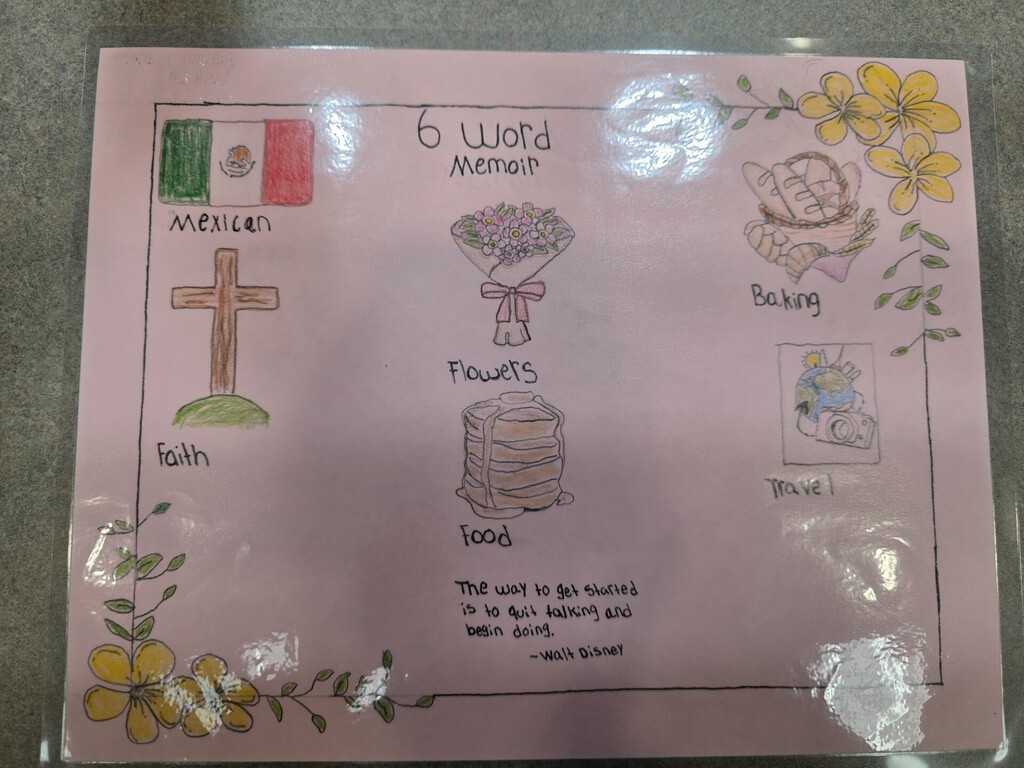 6 Word
Memoir
Mexican
Flowers
Baking
Faith
Food
Travel
The way to get started
is to quit talking and
begin doing.
~Walt Disney